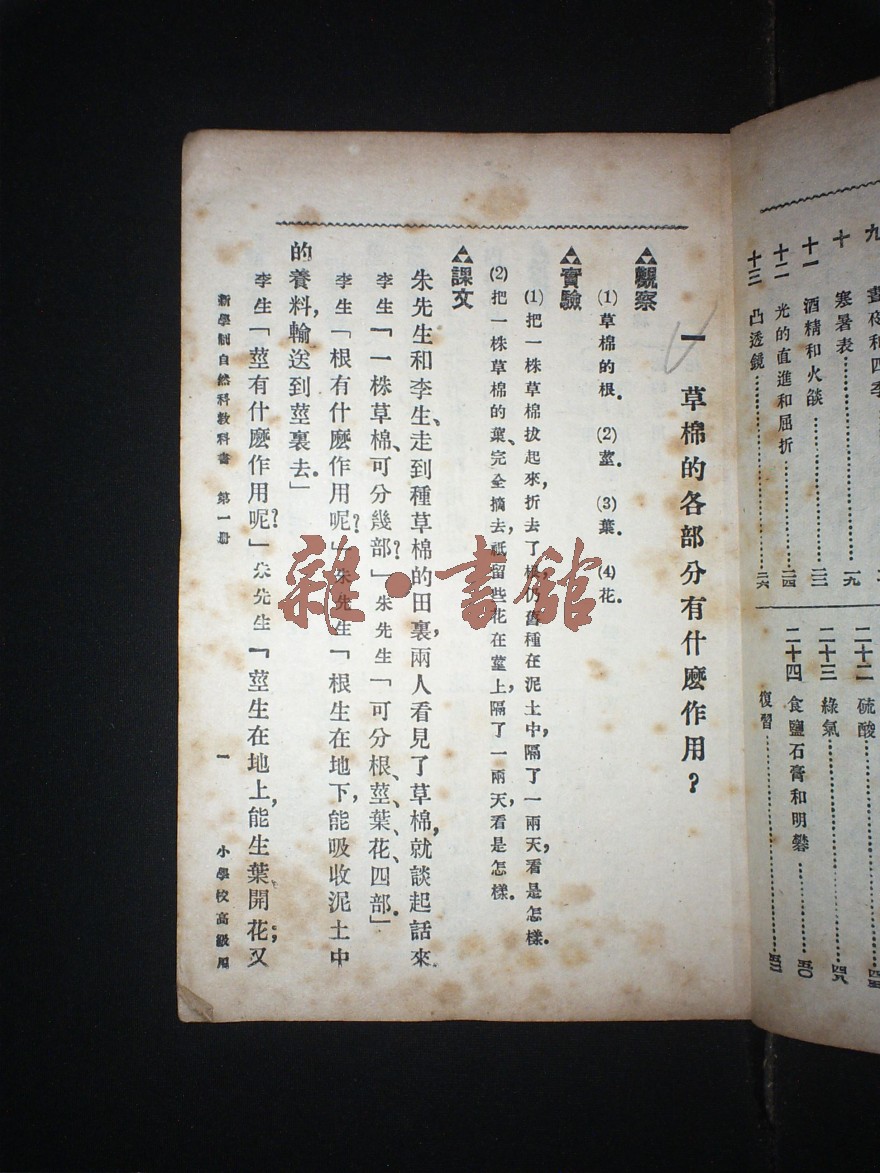 九
十 寒暑表……一九
十一 酒精和火燄……二二
十二 光的直進和屈折……二四
十三 凸透鏡……二六
二十二 硫酸……四五
二十三 綠氣……四八
二十四 食鹽石膏和明礬……五〇
復習……五二
一 草棉的各部分有什麽作用?
觀察
(1)草棉的根. (2)莖. (3)葉. (4)花.
實驗
(1)把一株草棉拔起來,折去了根,仍舊種在泥土中,隔了一兩天,看是怎樣.
(2)把一株草棉的葉、完全摘去,祇留些花在莖上,隔了一兩天,看是怎樣.
課文
朱先生和李生、走到種草棉的田裏,兩人看見了草棉,就談起話來.
李生「一株草棉、可分幾部?」朱先生「可分根、莖、葉、花、四部.」
李生「根有什麽作用呢?」朱先生「根生在地下,能吸收泥土中
的養料,輸送到莖裏去.」
李生「莖有什麽作用呢?」朱先生「莖生在地上,能生葉開花;又
新學制自然科教科書 第一冊 一 小學校高級用
雜·書館